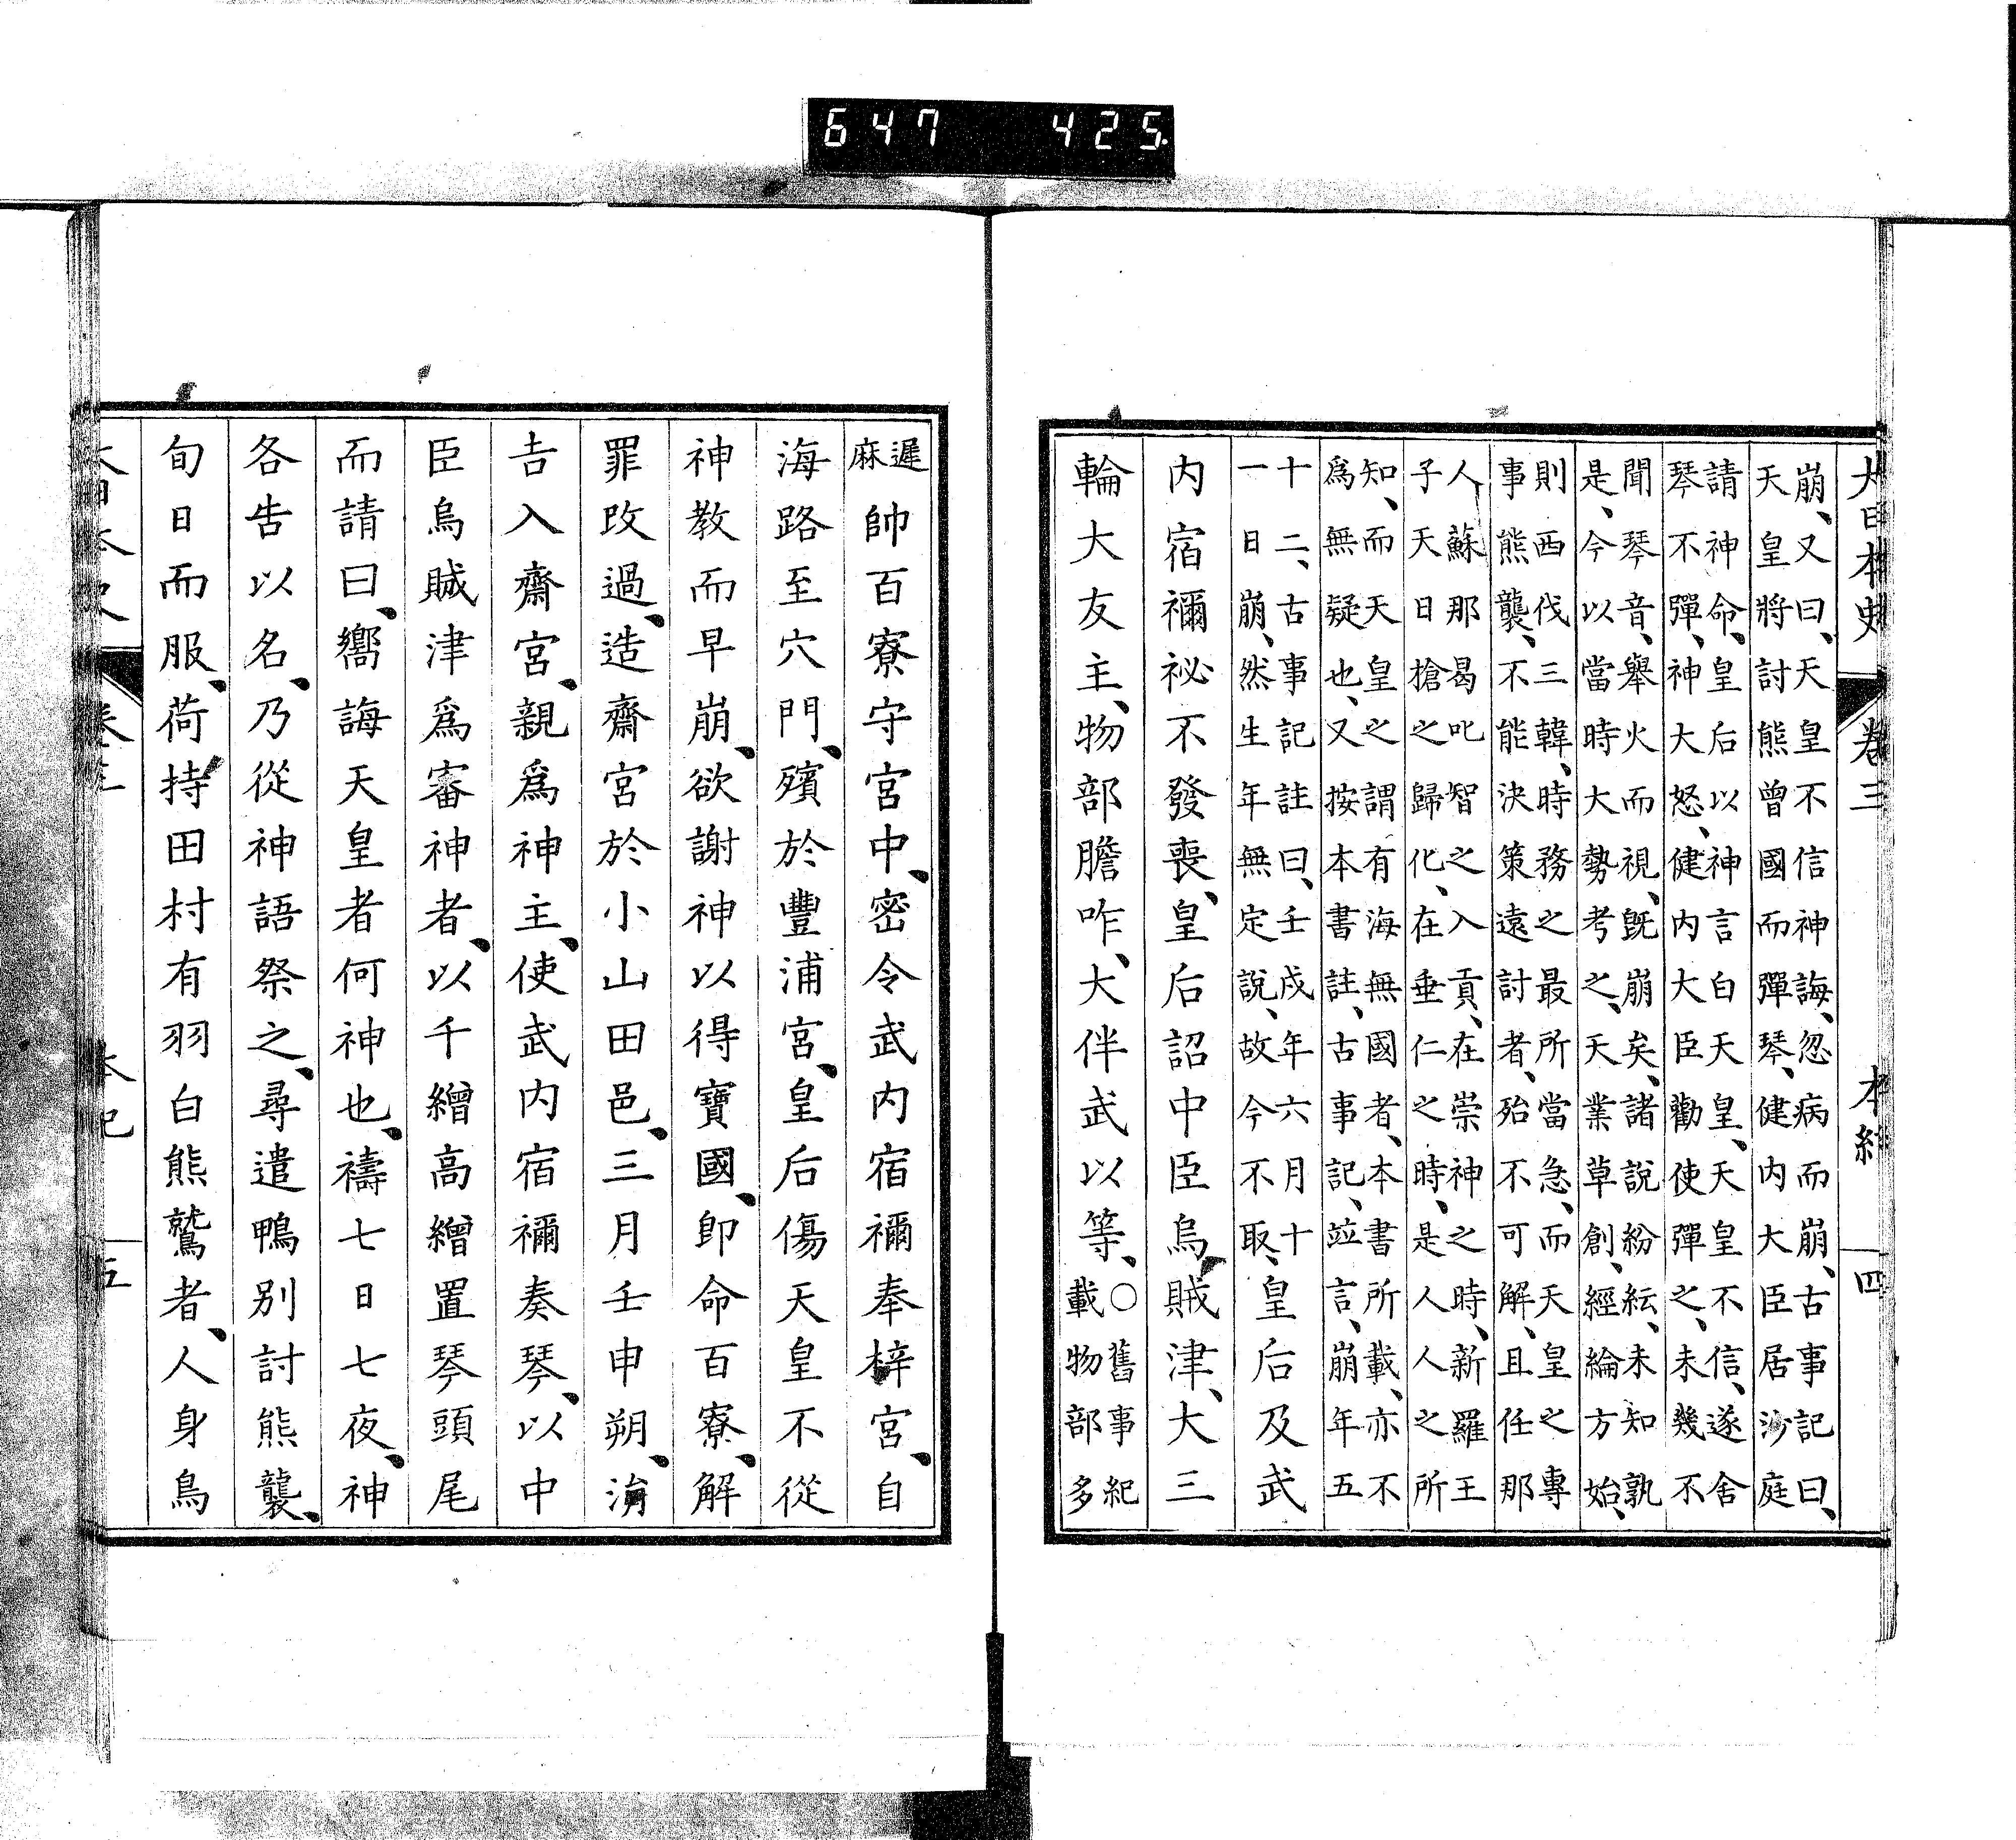 大日本史 卷三 本紀 四
崩、又曰、天皇不信神誨、忽病而崩、古事記曰、
天皇將討熊曾國而彈琴、健内大臣居沙庭
請神命、皇后以神言白天皇、天皇不信、遂舍
琴不彈、神大怒、健内大臣勸使彈之、未幾不
聞琴音、舉火而視、既崩矣、諸說紛紜、未知孰
是、今以當時大勢考之、天業草創、經綸方始、
則西伐三韓、時務之最所當急、而天皇之專
事熊襲、不能決策遠討者、殆不可解、且任那
人蘇那曷叱智之入貢、在崇神之時、新羅王
子天日槍之歸化、在垂仁之時、是人人之所
知、而天皇之謂有海無國者、本書所載、亦不
爲無疑也、又按本書註、古事記、竝言、崩年五
十二、古事記註曰、壬戌年六月十
一日崩、然生年無定說、故今不取、皇后及武
内宿禰祕不發喪、皇后詔中臣烏賊津、大三
輪大友主、物部膽咋、大伴武以等、○舊事紀
載物部多
遲
麻帥百寮守宮中、密令武内宿禰奉梓宮、自
海路至穴門、殯於豐浦宮、皇后傷天皇不從
神教而早崩、欲謝神以得寶國、卽命百寮、解
罪改過、造齋宮於小山田邑、三月壬申朔、涓
吉入齋宮、親爲神主、使武内宿禰奏琴、以中
臣烏賊津爲審神者、以千繒高繒置琴頭尾
而請曰、嚮誨天皇者何神也、禱七日七夜、神
各告以名、乃從神語祭之、尋遣鴨別討熊襲、
旬日而服、荷持田村有羽白熊鷲者、人身鳥
大日本史 卷三 本紀 五
647 425